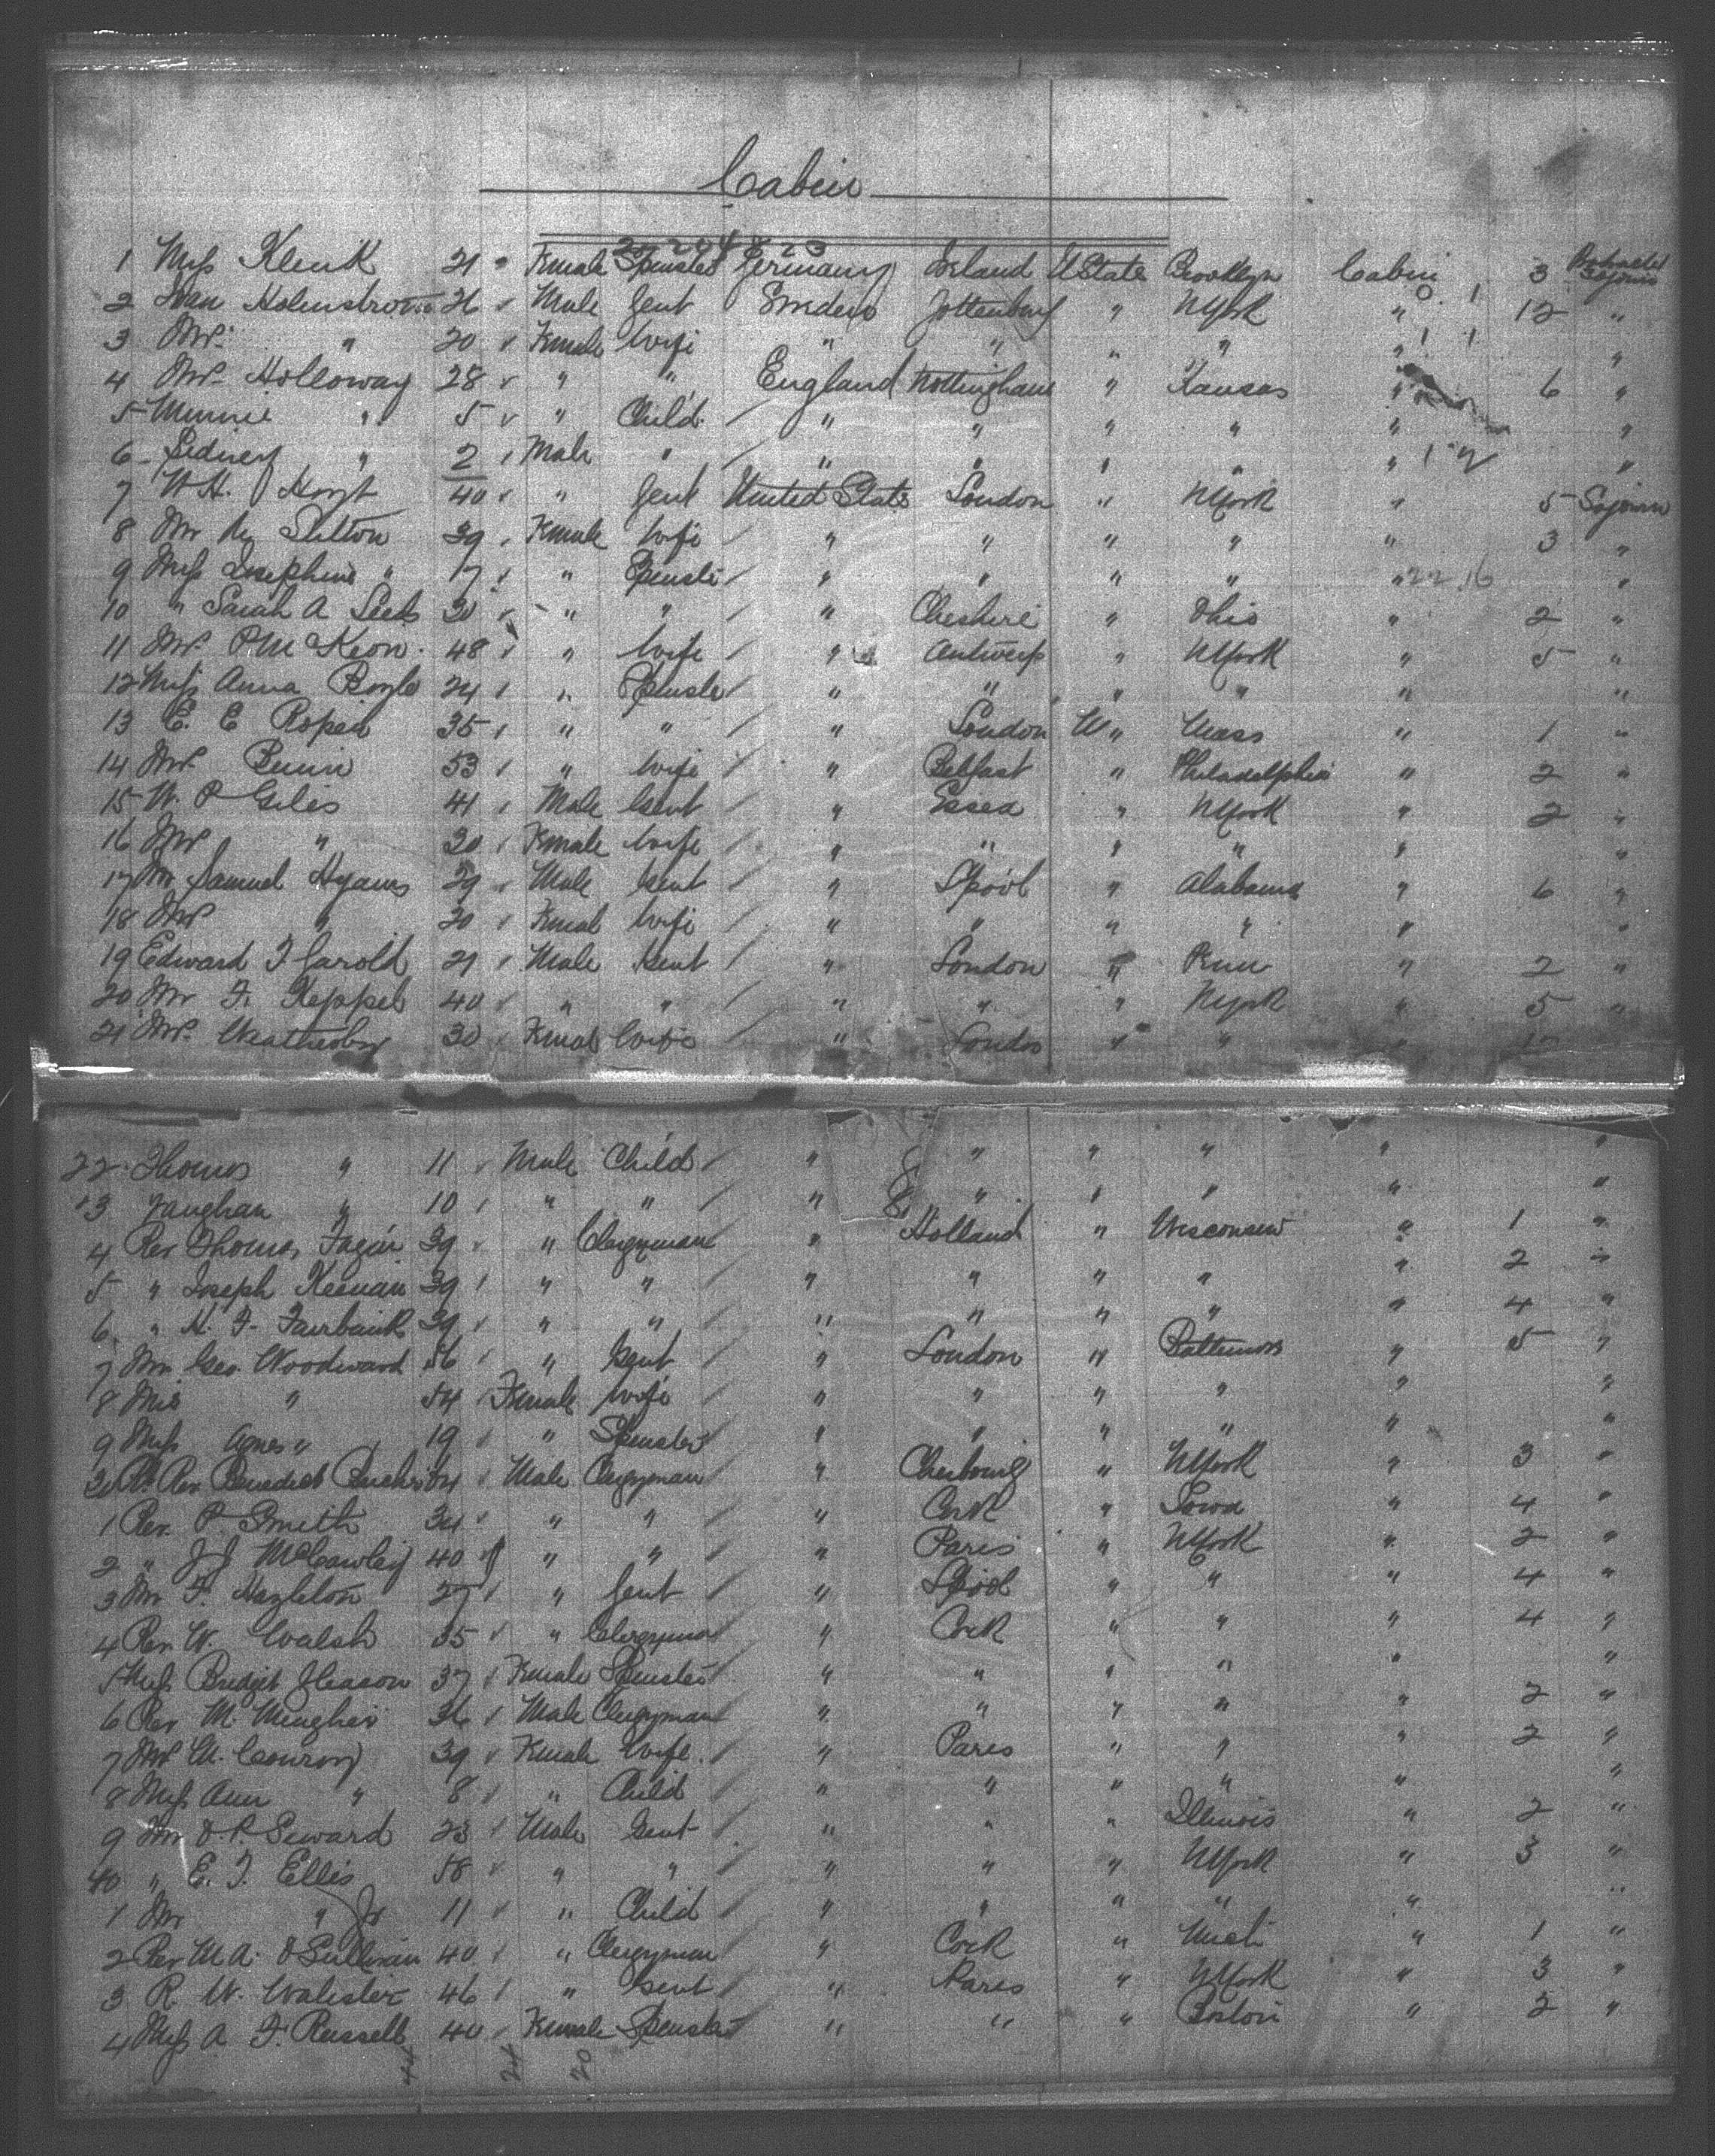 Cabin
1 Miss Klenk 21 Female Spinster Germany Ireland U State Brooklyn Cabin 3
2 Ivan Holmstrom 26 Male Gent Sweden Gottenburg " NYork " 12 "
3 Mrs " 20 Female Wife " " " " " "
4 Mrs Holloway 28 " " England Nottingham " Kansas " 6 "
5 Minnie " 5 " Child " " " " " "
6 Sidney " 2 Male " " " " " " "
7 W.H. Hoyt 40 " Gent United State London " NYork " 5 Sojourn
8 39 Female Wife " " " " " 3 "
9 Miss Josephine " 17 " Spinster " " " " " "
10 " Sarah A 30 " " " Cheshire " Ohio " 2 "
11 Mrs P McKeon 48 " Wife " Antwerp " NYork " 5 "
12 Miss Anna Boyle 24 " Spinster " " " " " "
13 E. E Roper 35 " " " London " Mass " 1 "
14 Mrs 53 " Wife " Belfast " Philadelphia " 2 "
15 W. P Giles 41 Male Gent " Essex " NYork " 2 "
16 Mrs " 30 Female Wife " " " " " "
17 Mr Samuel Hyams 29 Male Gent " L'pool " Alabama " 6 "
18 Mrs " 20 Femal Wife " " " " " "
19 Edward F Carold 21 Male Gent " London " Penn " 2 "
20 Mr F. Keppel 40 " " " " " NYork " 5 "
21 Mrs Weatherby 30 Femal Wife " London " " "
22 Thomas " 11 Male Child " " " " " "
3 Vaughan " 10 " " " " " " " "
4 Rev Thomas Fagin 39 " Clergyman " Holland " Wisconsin " 1 "
5 " Joseph Keenan 39 " " " " " " " 2 "
6 " H. F. Fairbank 39 " " " " " " " 4 "
7 Mr Geo. Woodward 56 " Gent " London " Baltimore " 5 "
8 Mrs " 54 Female Wife " " " " " "
9 Miss Agnes " 19 " Spinster " " " " " "
30 Rt Rev Benedict Male Clergyman " Cherbourg " NYork " 3 "
1 Rev. P. Smith 34 " " " Cork " Iowa " 4 "
2 " J J McCawley 40 " " " Paris " NYork " 2 "
3 Mr F. Hazleton 27 " Gent " L'pool " " " 4 "
4 Rev W. Walsh 35 " Clergyman " Cork " " " 4 "
5 Miss Bridget Gleason 37 Female Spinster " " " " " "
6 Rev M. Meagher 36 Male Clergyman " " " " " 2 "
7 Mrs M. Conroy 39 Female Wife " Paris " " " 2 "
8 Miss Ann " 8 " Child " " " " " "
9 Mr O.P. Seward 23 Male Gent " " " Illinois " 2 "
40 " E. T. Ellis 58 " " " " " NYork " 3 "
1 Mr " Jr 11 " Child " " " " " "
2 Rev M A. O Sullivan 40 " Clergyman " Cork " Mich " 1 "
3 R. W. 46 " Gent " Paris " NYork " 3 "
4 Miss A F. Russell 40 Female Spinster " " " Boston " 2 "
44 24 20